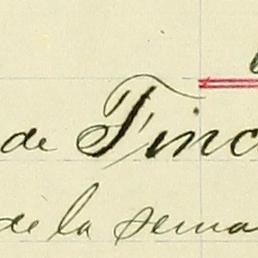 de Finc
de la sema